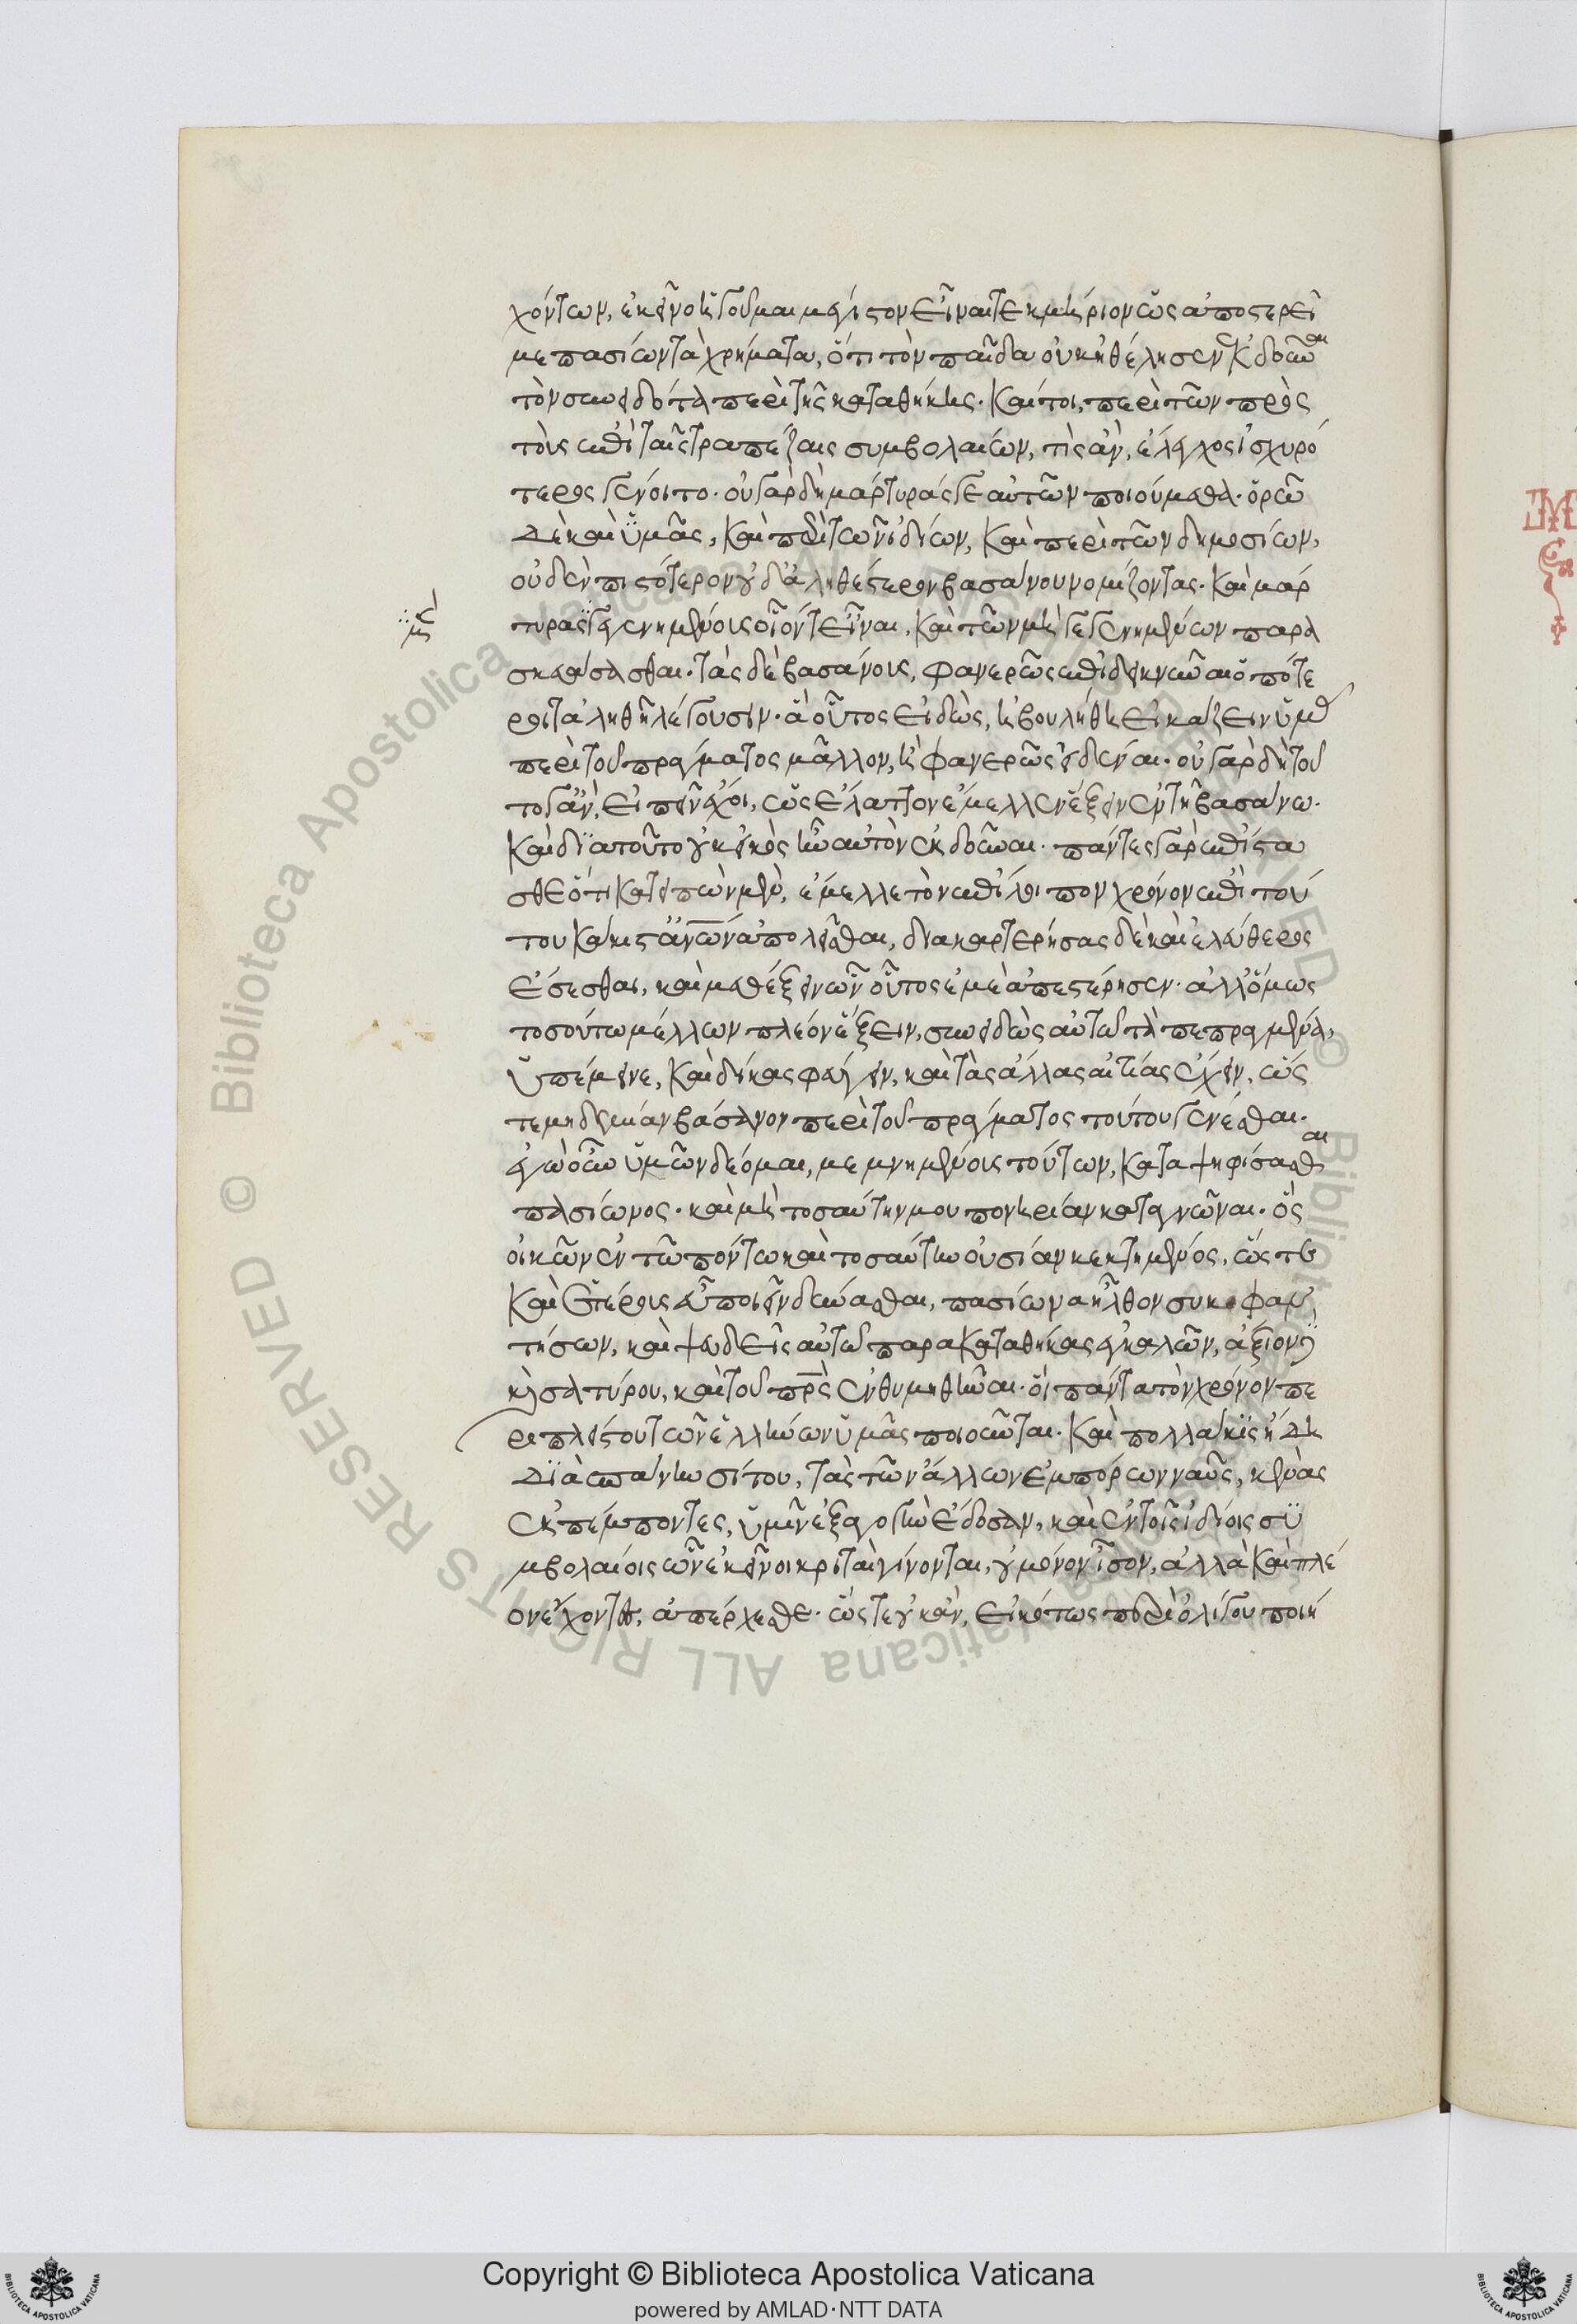 χόντων, ἐκεῖνο ἡγοῦμαι μέγιστον εἶναι τεκμήριον ὡς ἀποστερεῖ
με πασίων τὰ χρήματα, ὅτι τὸν παῖδα οὐκ ἠθέλησεν ἐκδοῦναι
τὸν συνειδότα περὶ τῆς καταθήκης. Καίτοι, περὶ τῶν πρὸς
τοὺς ἐπὶ ταῖς τραπέζαις συμβολαίων, τίς ἂν, ἔλεγχος ἰσχυρό
τερος γένοιτο. οὐ γὰρ δὴ μάρτυράς γε αὐτῶν ποιούμεθα. ὁρῶ
δὲ καὶ ὑμᾶς, καὶ περὶ τῶν ἰδίων, καὶ περὶ τῶν δημοσίων,
οὐδὲν πιστότερον οὐδ' ἀληθέστερον βασάνου νομίζοντας. καὶ μάρ
τυρας γεγενημένοις οἷόν τ' εἶναι, καὶ τῶν μὴ γεγενημένων παρα
σκευάσασθαι. τὰς δὲ βασάνους, φανερῶς ἐπιδεικνύναι ὁπότε
ροι τἀληθῆ λέγουσιν. ἃ οὗτος εἰδὼς, ἠβουλήθη εἰκάζειν ὑμᾶς
περὶ τοῦ πράγματος μᾶλλον, ἢ φανερῶς εἰδέναι. οὐ γὰρ δὴ τοῦ
το γ' ἂν, εἰπεῖν ἔχοι, ὡς ἔλαττον ἔμελλεν ἕξειν ἐν τῆ βασάνω.
καὶ διὰ τοῦτο οὐκ εἰκὸς ἦν αὐτὸν ἐκδοῦναι. πάντες γὰρ ἐπίστα
σθε ὅτι κατειπὼν μὲν, ἔμελλε τὸν ἐπίλοιπον χρόνον ἐπὶ τού
του κάκιστ' ἀνθρώπων ἀπολεῖσθαι, διακαρτερήσας δὲ καὶ ἐλεύθερος
ἔσεσθαι, καὶ μεθέξειν ὧν οὗτος ἐμὲ ἀπεστέρησεν. ἀλλ' ὅμως
τοσούτω μέλλων πλέον ἕξειν, συνειδὼς αὑτῶ τὰ πεπραγμένα,
ὑπέμεινε, καὶ δίκας φεύγειν, καὶ τὰς ἄλλας αἰτίας ἔχειν, ὥς
τε μηδεμίαν βάσανον περὶ τοῦ πράγματος τούτου γενέσθαι.
ἐγὼ οὖν ὑμῶν δέομαι, μεμνημένοις τούτων, καταψηφίσασθαι
πασίωνος. καὶ μὴ τοσαύτην μου πονηρίαν καταγνῶναι. ὃς
οἰκῶν ἐν τῶ πόντω καὶ τοσαύτην οὐσίαν κεκτημένος, ὥστε
καὶ ἑτέρους εὖ ποιεῖν δύνασθαι, πασίωνα ἦλθον συκοφαν
τήσων, καὶ ψευδεῖς αὐτῶ παρακαταθήκας ἐγκαλῶν, ἄξιον
καὶ σατύρου, καὶ τοῦ πρς ἐνθυμηθῆναι. οἳ πάντα τὸν χρόνον πε
ρὶ πλείστου τῶν ἑλλήνων ὑμᾶς ποιοῦνται. καὶ πολλάκις ἤδη
διὰ σπάνιν σίτου, τὰς τῶν ἄλλων ἐμπόρων ναῦς, κενὰς
ἐκπέμποντες, ὑμῖν ἐξαγωγὴν ἔδοσαν, καὶ ἐν τοῖς ἰδίοις συ
μβολαίοις ὧν ἐκεῖνοι κριταὶ γίνονται, οὐ μόνον ἴσον, ἀλλὰ καὶ πλέ
ον ἔχοντες, ἀπέρχεσθε. ὥστε οὐκ ἂν, εἰκότως περὶ ὀλίγου ποιή
© Biblioteca Apostolica Vaticana ALL RIGHTS RESERVED
Copyright © Biblioteca Apostolica Vaticana
powered by AMLAD·NTT DATA